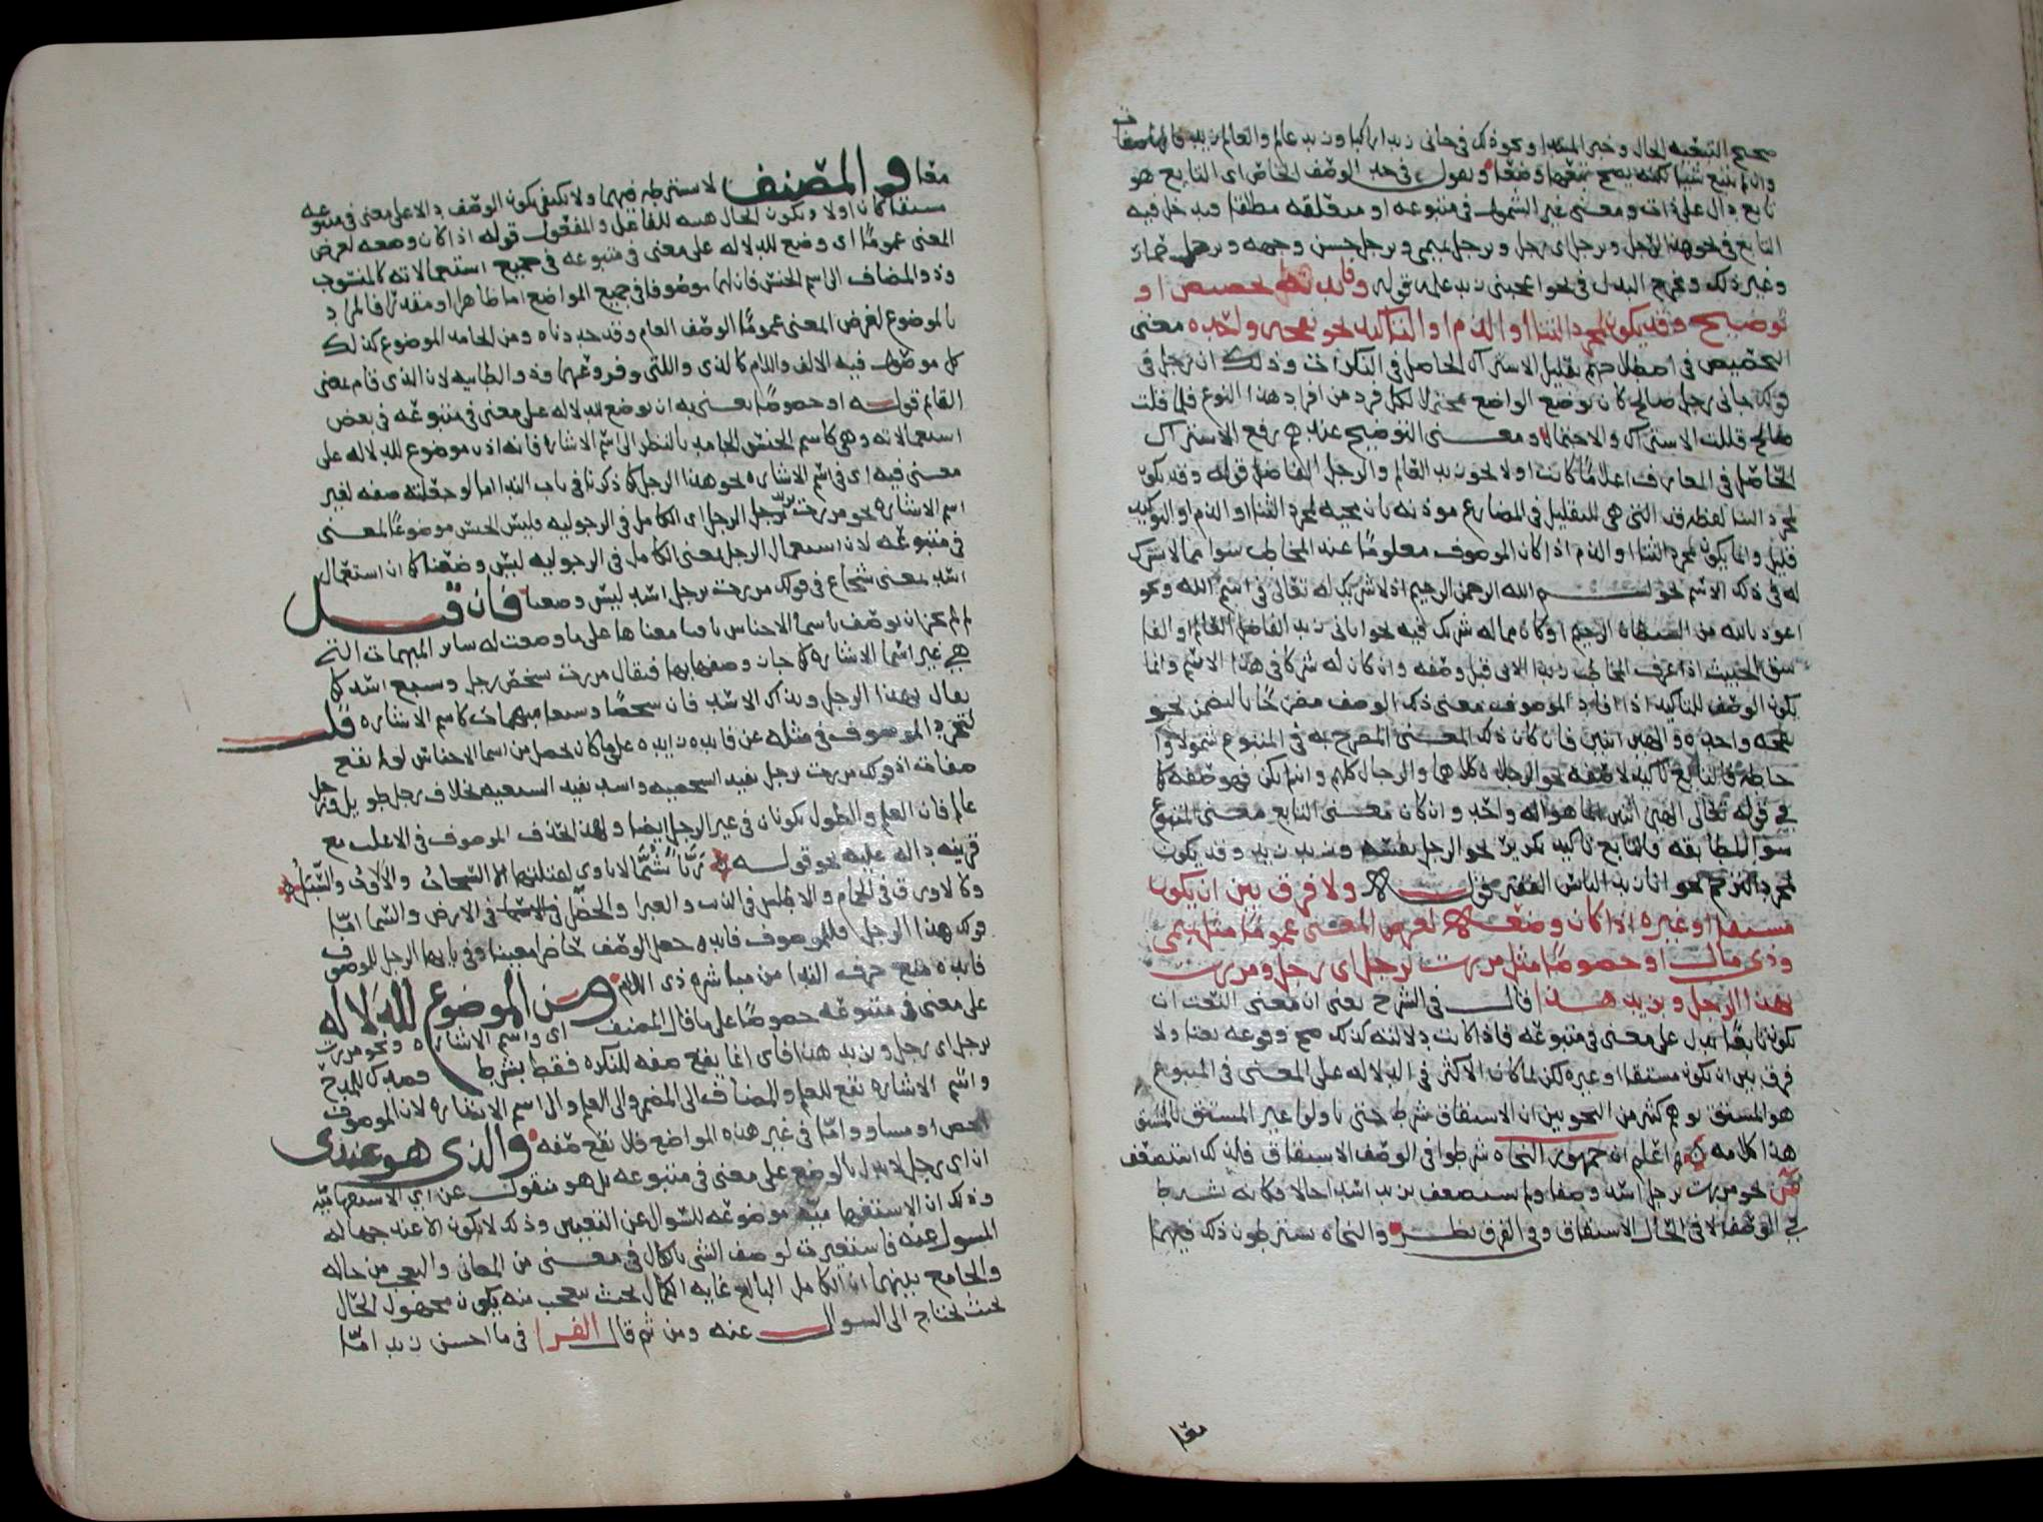 صحيح التبعية لحال وخبر المبتدا ونحو ذلك في جاني زيد راكبا وزيد عالم والعالم زيد
وان لم يتبع شيا لكنه يصح تبعها وضعا ونقول في حد الوصف الخاص اي التابع هو
تابع دال على ذات ومعنى غير الشمول في متبوعه او متعلقه مطلقا فيدخل فيه
التابع في نحو هذا الرجل وبرجل اي رجل وبرجل تميمي وبرجل حسن وجهه وبرجل
وغير ذلك ويخرج البدل في نحو اعجبني زيد علمه قوله وفايدته تخصيص او
توضيح وقد يكون لمجرد الثنا او الذم او التاكيد نحو نفخة واحدة معنى
التخصيص في اصطلاحهم تقليل الاشتراك الحاصل في النكرات وذلك ان رجل في
قولك جاني رجل صالح كان بوضع الواضع محتملا لكل فرد من افراد هذا النوع فلما قلت
صالح قللت الاشتراك والاحتمال ومعنى التوضيح عندهم رفع الاشتراك
الحاصل في المعارف اعلاما كانت اولا نحو زيد العالم والرجل الفاضل قوله وقد يكون
لمجرد الثنا لفظة قد التي هي للتقليل في المضارع موذنه بان مجيه لمجرد الثنا او الذم او التوكيد
قليل وانما يكون لمجرد الثنا او الذم اذا كان الموصوف معلوما عند المخاطب سوا مما لا شرك
له في ذلك الاسم نحو بسم الله الرحمن الرحيم اذ لا شريك له تعالى في اسم الله ونحو
اعوذ بالله من الشيطان الرجيم او كان مما له شرك فيه نحو اتاني زيد الفاضل العالم او الفا
سق الخبيث اذا عرف المخاطب زيدا الاتي قبل وصفه وان كان له شركا في هذا الاسم وانما
يكون الوصف للتاكيد اذا افاد الموصوف معنى ذلك الوصف مصرحا بالتضمن نحو
نفخه واحده والهين اثنين فان كان ذلك المعنى المصرح به في المتبوع شمولا وا
حاطه فالتابع تاكيد لا صفه نحو الرجلان كلاهما والرجال كلهم وان لم يكن فهو صفه كما
في قوله تعالى الهين اثنين انما هو اله واحد وان كان معنى التابع معنى المتبوع
سوا بالمطابقه فالتابع تاكيد تكرير نحو الرجل نفسه وزيد زيد وقد يكون
لمجرد الترحم نحو انا زيد البائس الفقير قوله ولا فرق بين ان يكون
مشتقا او غيره اذا كان وضعه لغرض المعنى عموما مثل تميمي
وذي مال او خصوصا مثل مررت برجل اي رجل ومررت
بهذا الرجل وبزيد هذا قال في الشرح يعني ان معنى النعت ان
يكون تابعا يدل على معنى في متبوعه فاذا كانت دلالته كذلك صح وقوعه نعتا ولا
فرق بين ان يكون مشتقا او غيره لكن لما كان الاكثر في الدلاله على المعنى في المتبوع
هو المشتق توهم كثير من النحويين ان الاشتقاق شرط حتى تاولوا غير المشتق بالمشتق
هذا كلامه اعلم ان جمهور النحاه شرطوا في الوصف الاشتقاق فلذلك استضعف
نحو مررت برجل اسد وصفا ولم يستضعف بزيد اسدا حالا فكانه شرط
في الوصف لا في الحال الاشتقاق وفي الفرق نظر والنحاه يشترطون ذلك فيهما
معا والمصنف لا يشترطه فيهما ولا يكفي بكون الوصف دالا على معنى في متبوعه
مشتقا كان اولا وبكون الحال هيه للفاعل والمفعول قوله اذا كان وضعه لغرض
المعنى عموما اي وضع للدلاله على معنى في متبوعه في جميع استعمالاته كالمنسوب
وذو المضاف الى اسم الجنس فان لهما موصوفا في جميع المواضع اما ظاهرا او مقدرا فالمراد
بالموضوع لغرض المعنى عموما الوصف العام وقد حددناه ومن الجامد الموضوع كذلك
كل موصول فيه الالف واللام كالذي واللتي وفروعهما وذو الطاييه لان الذي قام بمعنى
القايم قوله او خصوصا يعني به ان يوضع للدلاله على معنى في متبوعه في بعض
استعمالاته وهي كاسم الجنس الجامد بالنظر الى اسم الاشاره فانه اذن موضوع للدلاله على
معنى فيه اي في اسم الاشاره نحو هذا الرجل كما ذكرنا في باب الندا اما لو جعلته صفه لغير
اسم الاشاره نحو مررت بزيد الرجل اي الكامل في الرجوليه فليس الجنس موضوعا لمعنى
في متبوعه لان استعمال الرجل بمعنى الكامل في الرجوليه ليس وضعيا كما ان استعمال
اسد بمعنى شجاع في قولك مررت برجل اسد ليس وضعيا فان قيل
لم لم يجز ان يوصف باسما الاجناس باقيا معناها على ما وضعت له ساير المبهمات التي
هي غير اسما الاشاره كما جاز وصفها بها فيقال مررت بشخص رجل وسبع اسد كما
يقال بهذا الرجل وبذاك الاسد فان شخصا وسبعا مبهمان كاسم الاشاره قلت
لتجرد الموصوف في مثله عن فايده زايده على ما كان يحصل من اسما الاجناس لو لم تقع
صفات اذ قولك مررت برجل يفيد الشخصيه واسد يفيد السبعيه بخلاف رجل طويل ورجل
عالم فان العلم والطول يكونان في غير الرجل ايضا ولهذا يحذف الموصوف في الاغلب مع
قرينه داله عليه نحو قوله ربا شما لا ياوي لقلتها الا السحاب والا الاوب والسبل
وكالاورق في الحمام والاطلس في الذيب والغبرا والخضرا في الارض والسما اما
قولك هذا الرجل فللموصوف فايده جعل الوصف حاضرا معينا وفي يا ايها الرجل للموصوف
فايده منع حرف الندا من مباشره ذي اللام ومن الموضوع للدلاله
على معنى في متبوعه خصوصا على ما قال المصنف اي واسم الاشاره ونحو مررت
برجل اي رجل وبزيد هذا فاي انما يقع صفه للنكره فقط بشرط قصدك للمدح
واسم الاشاره تقع للعلم والمضاف الى المضمر والى العلم والى اسم الاشاره لان الموصوف
اخص او مساو واما في غير هذه المواضع فلا تقع صفه والذي هو عندي
ان اي رجل لا يدل بالوضع على معنى في متبوعه بل هو منقول عن اي الاستفهاميه
وذلك ان الاستفهاميه موضوعه للسوال عن التعيين وذلك لا يكون الا عند جهاله
المسول عنه فاستعيرت لوصف الشي بالكمال في معنى من المعاني والتعجب من حاله
والجامع بينهما ان الكامل البالغ غايه الكمال بحيث يتعجب منه يكون مجهول الحال
بحيث يحتاج الى السوال عنه ومن ثم قال الفرا في ما احسن زيدا اما